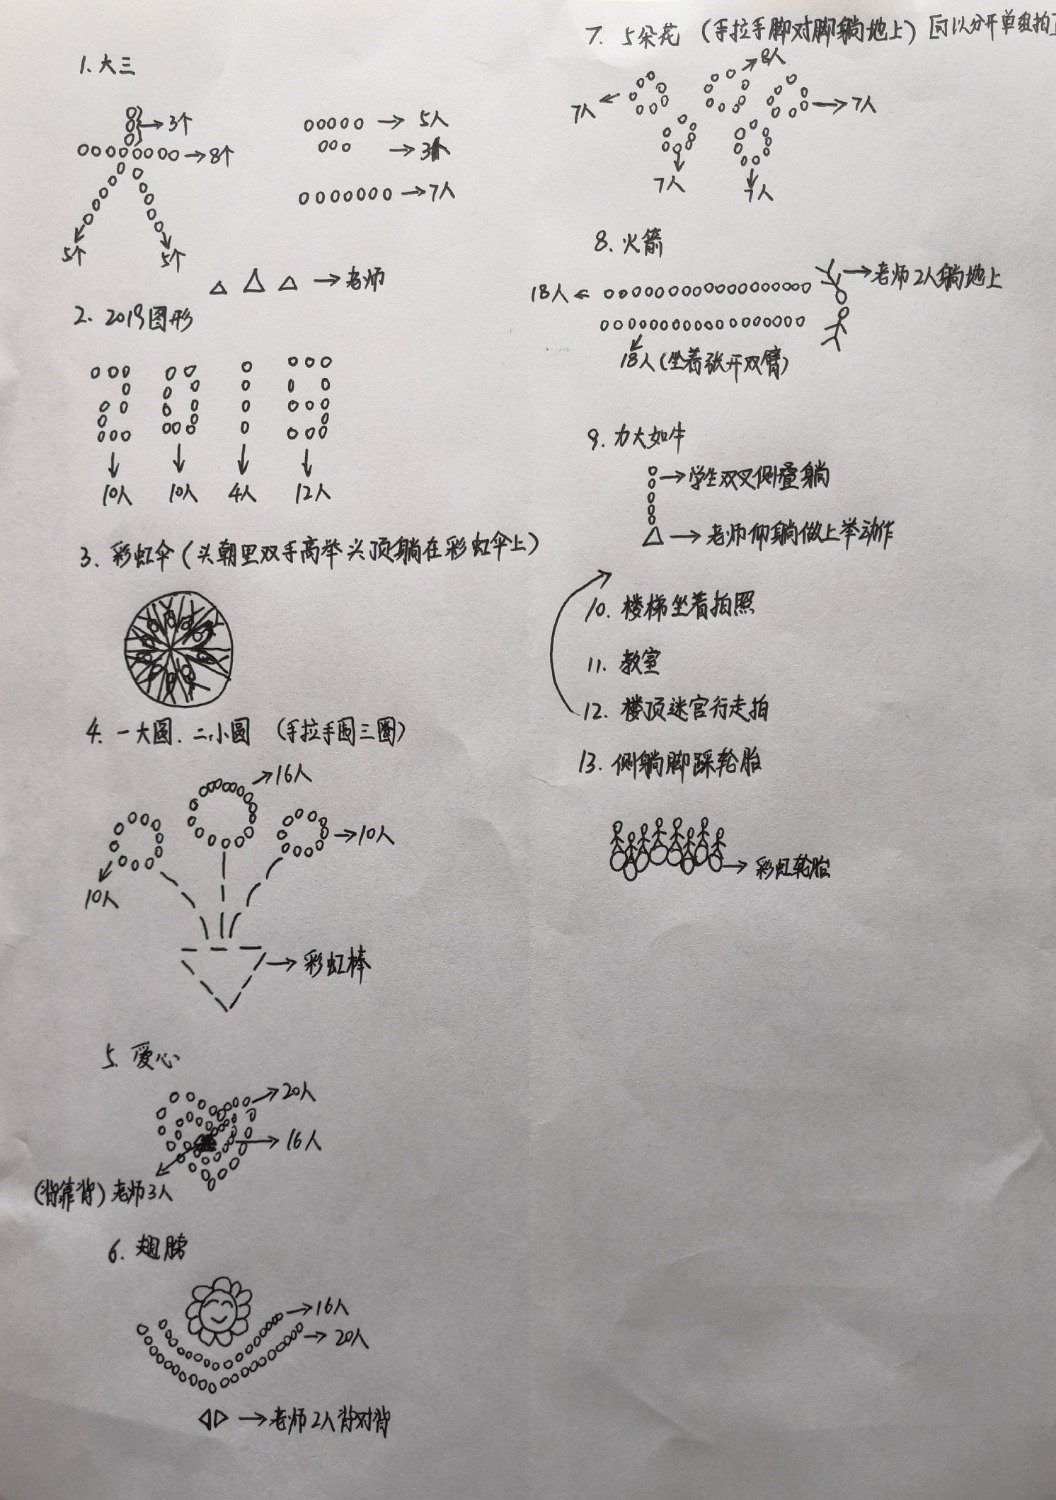 1. 大三
→3个
→8个
5个
5个
→ 5人
→ 3人
→7人
→老师
2. 2019图形
10人
10人
4人
12人
3. 彩虹伞(头朝里双手高举头顶躺在彩虹伞上)
4. 一大圆、二小圆 (手拉手围三圈)
→16人
→10人
10人
→彩虹棒
5. 爱心
→20人
→16人
(背靠背)老师3人
6. 翅膀
→16人
→20人
→老师2人背对背
7. 5朵花 (手拉手脚对脚躺地上)[可以分开单组拍]
8人
7人
→7人
7人
7人
8. 火箭
→老师2人躺地上
18人
18人(坐着张开双臂)
9. 力大如牛
→学生双叉侧叠躺
→老师仰躺做上举动作
10. 楼梯坐着拍照
11. 教室
12. 楼顶迷宫行走拍
13. 侧躺脚踩轮胎
→彩虹轮胎